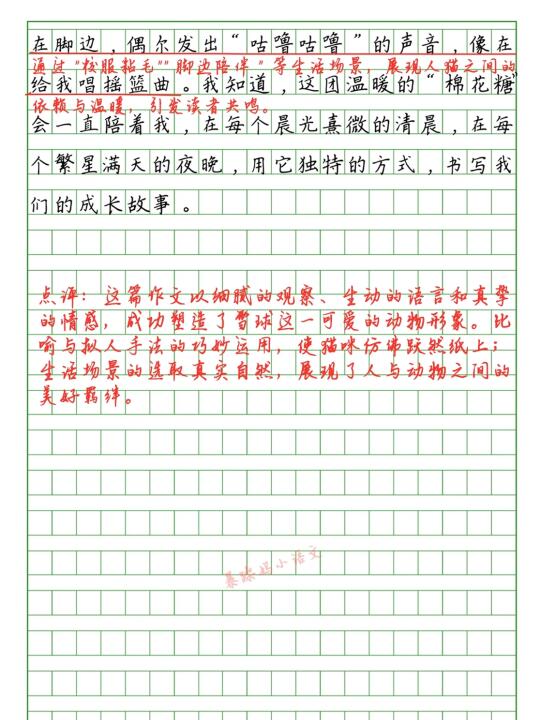 在脚边，偶尔发出“咕噜咕噜”的声音，像在
通过“校服粘毛”“脚边陪伴”等生活场景，展现人猫之间的
给我唱摇篮曲。我知道，这团温暖的“棉花糖”
依赖与温暖，引发读者共鸣。
会一直陪着我，在每个晨光熹微的清晨，在每
个繁星满天的夜晚，用它独特的方式，书写我
们的成长故事。
点评：这篇作文以细腻的观察、生动的语言和真挚
的情感，成功塑造了雪球这一可爱的动物形象。比
喻与拟人手法的巧妙运用，使猫咪仿佛跃然纸上；
生活场景的选取真实自然，展现了人与动物之间的
美好羁绊。
小语文